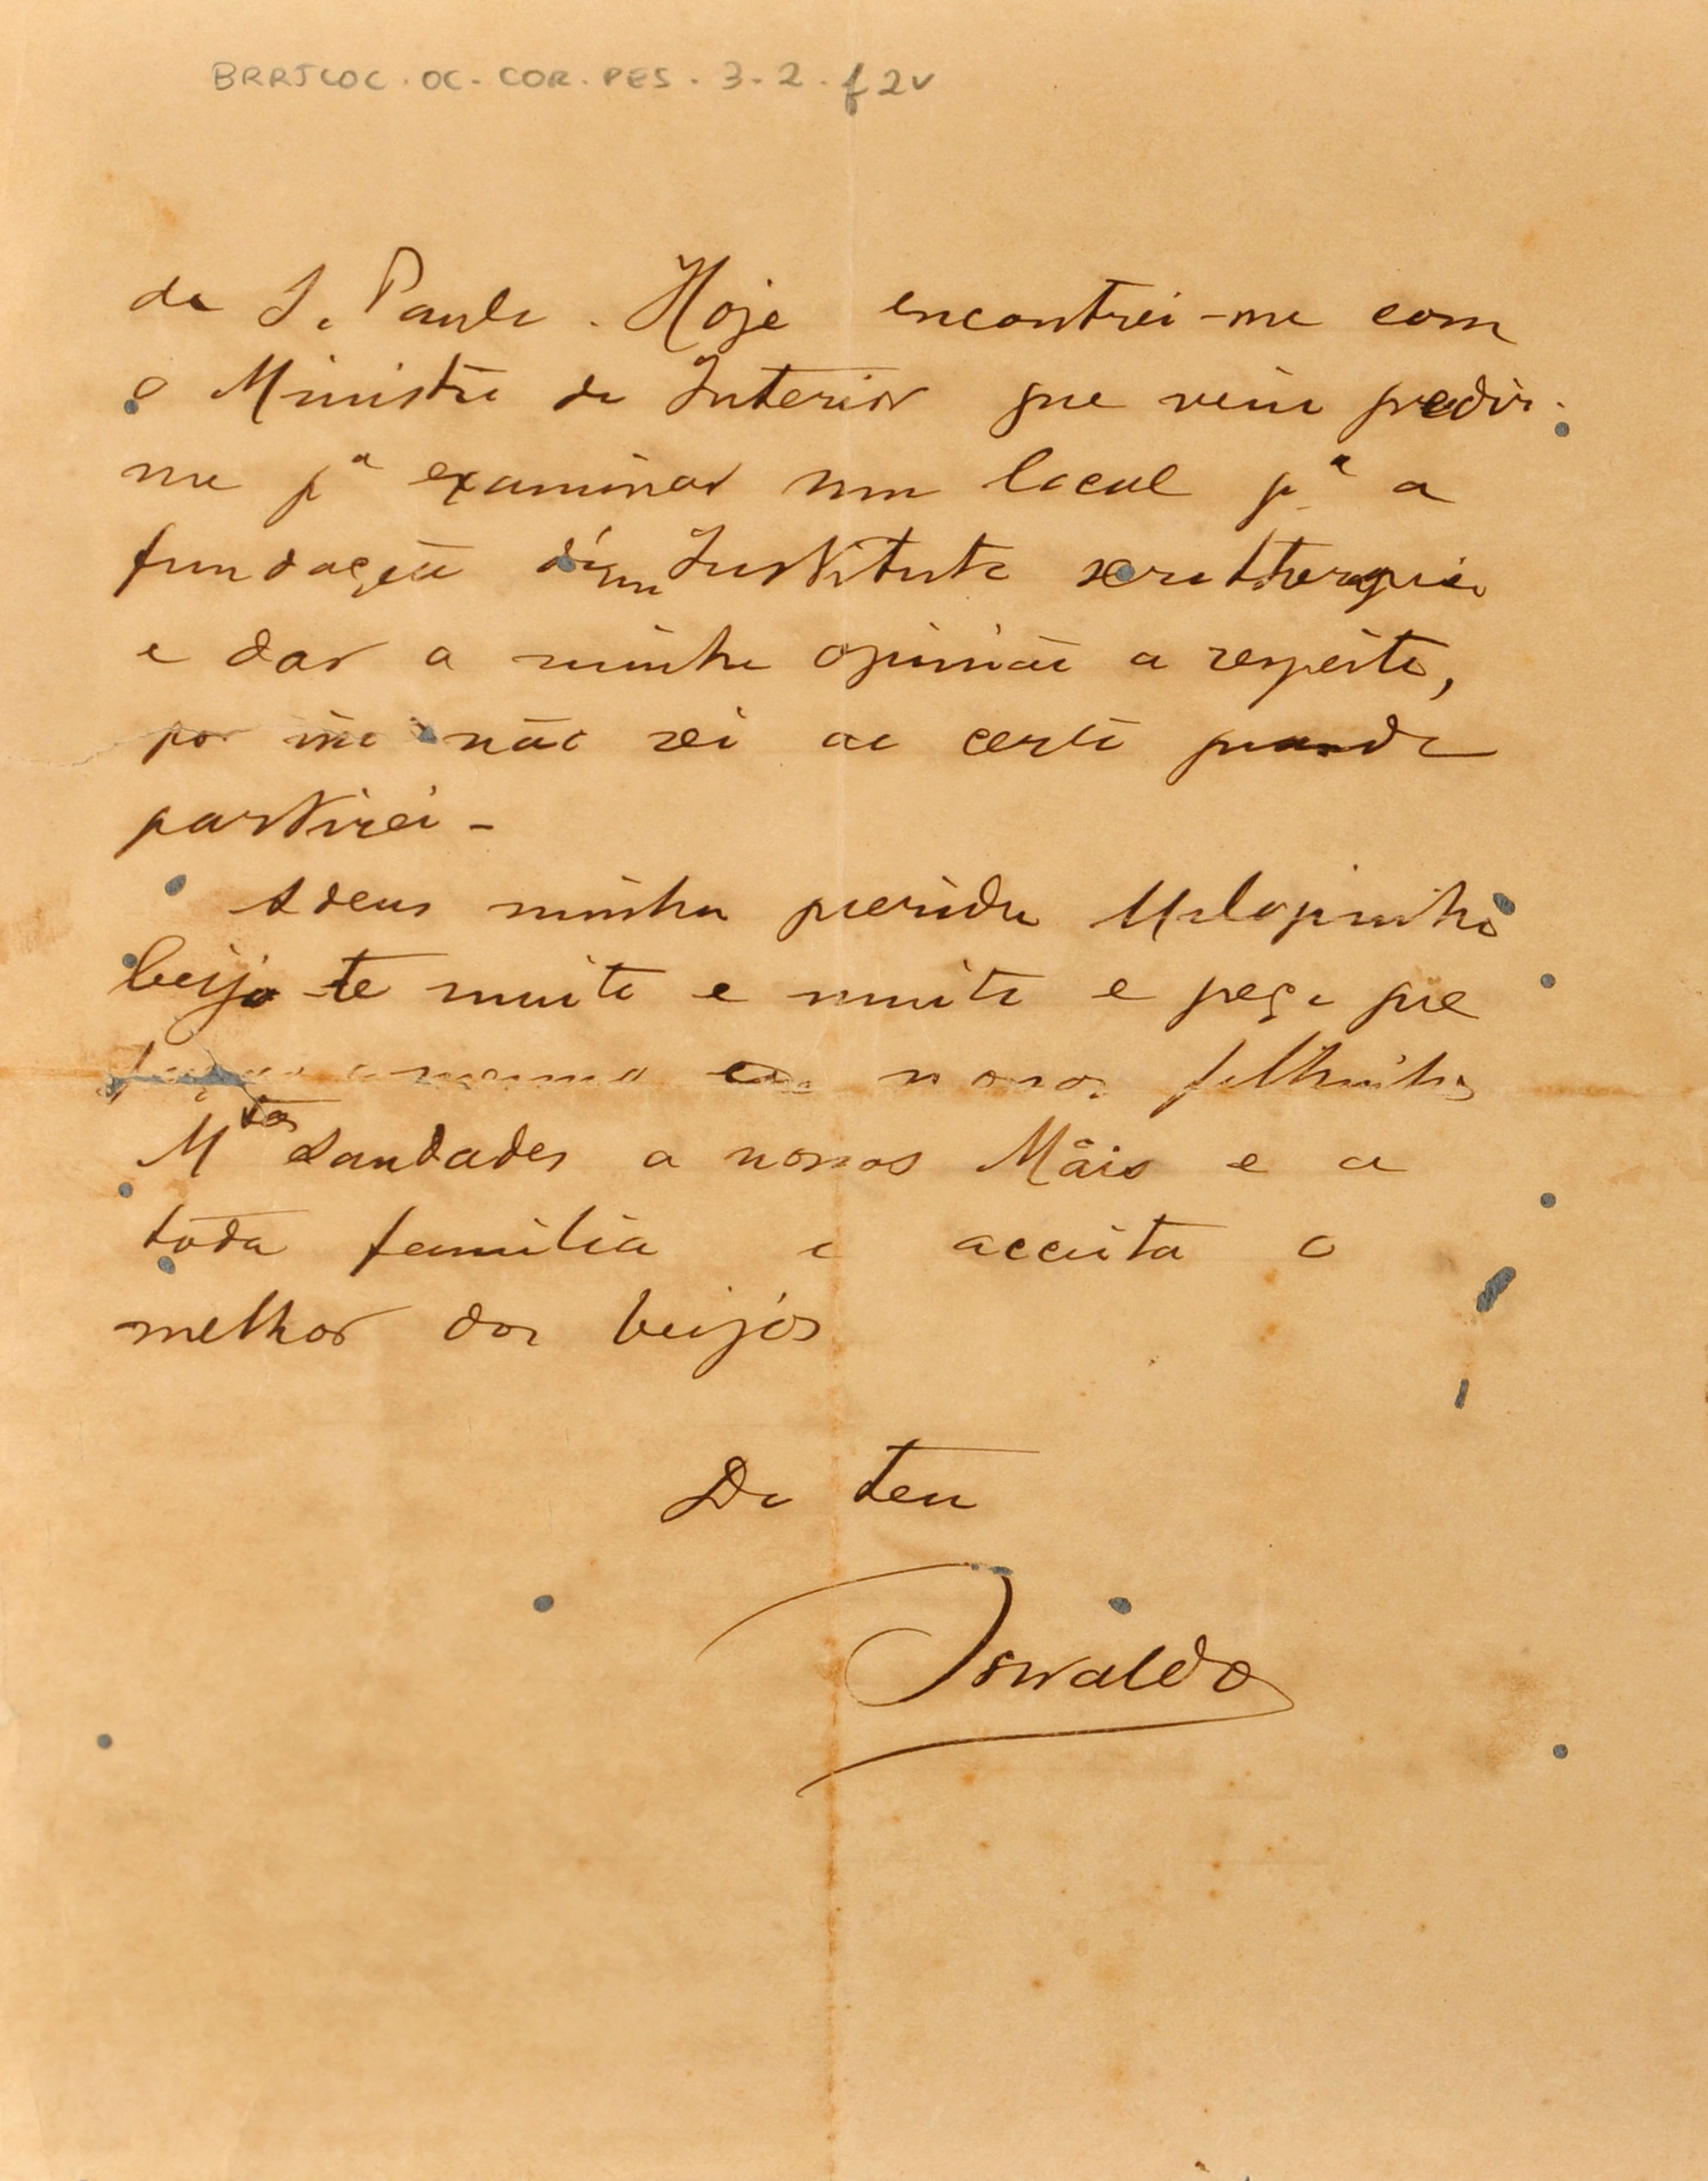 BRRJCOC. OC- COR. PES. 3-2. f 2v
de S. Paulo. Hoje encontrei-me com
o Ministro do Interior que veiu pedir-
me pª examinar um local pª a
fundação d'um Instituto serotherapico
e dar a minha opinião a respeito,
por isso não sei ao certo quando
partirei-
Adeus minha querida
beijo-te muito e muito e peço que
faças o mesmo nossos filhinhos
Mtas saudades a nossas Mãis e a
toda familia e acceita o
melhor dos beijos
Do teu
Oswaldo